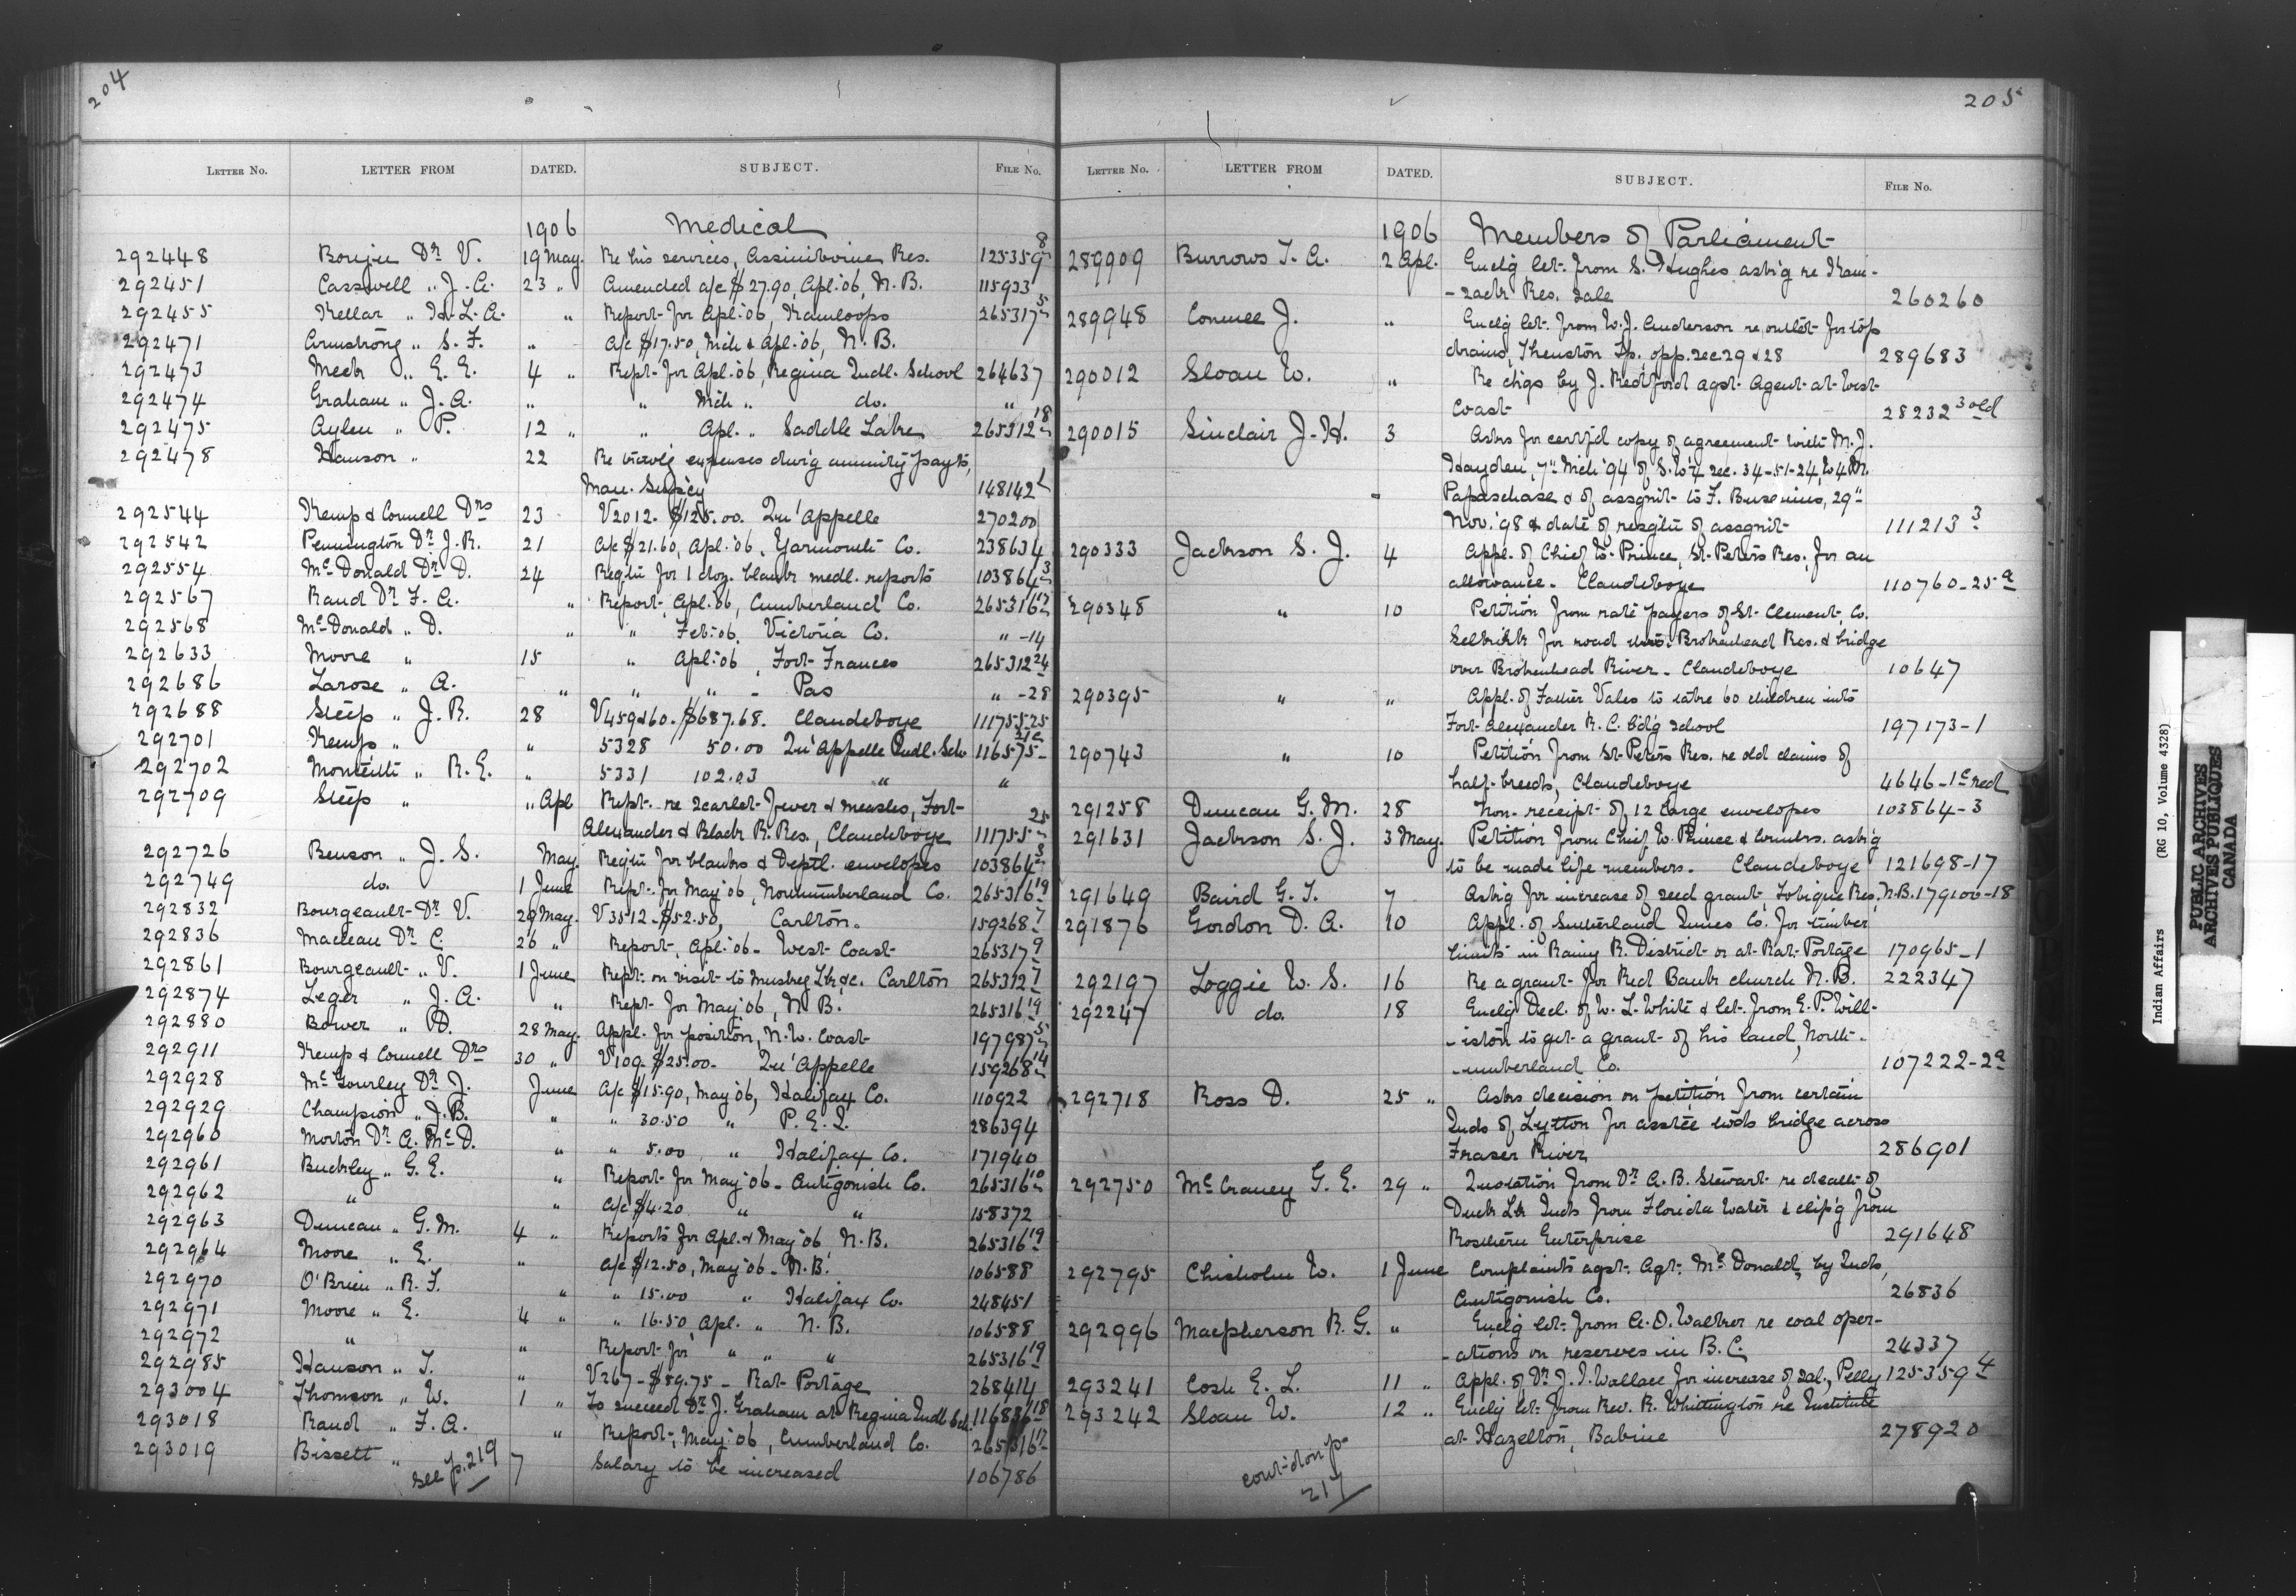 204
LETTER No. LETTER FROM DATED. SUBJECT. FILE No.
1906 Medical
292448 Bouju Dr. V. 19 May. Re his services, Assiniboine Res. 125359-8
292451 Casswell " J. A. 23 " Amended a/c $27.90, Apl. '06, N. B. 115933
292455 Kellar " H. L. A. " Report for Apl. '06, Kamloops 265317-5
292471 Armstrong " S. F. " A/c $17.50, Mch & Apl. '06, N. B.
292473 Meek " E. E. 4 " Rept. for Apl. '06, Regina Indl. School 264637
292474 Graham " J. A. " " Mch " do. "
292475 Aylen " P. 12 " " Apl. " Saddle Lake 265312-18
292478 Hanson " 22 Re trav'g expenses dur'g annuity payts,
Man. Sup'cy 148142-1
292544 Kemp & Connell Drs 23 V2012. $125.00. Qu'Appelle 270200
292542 Pennington Dr. J. R. 21 A/c $21.60, Apl. '06, Yarmouth Co. 238634
292554 McDonald Dr. D. 24 Reqtn for 1 doz. blank medl. reports 103864-3
292567 Rand Dr. F. A. " Report, Apl. '06, Cumberland Co. 265316-17
292568 McDonald " D. " " Feb. '06, Victoria Co. " -14
292633 Moore " 15 " Apl. '06, Fort Frances 265312-24
292686 Larose " A. " " " - Pas " -28
292688 Steep " J. R. 28 V459 & 60. $687.68. Clandeboye 111755-25
292701 Kemp " " 5328 50.00 Qu'Appelle Indl. Sch 116575-21c
292702 Monteith " R. E. " 5331 102.03 " "
292709 Steep " " Apl Rept. re scarlet fever & measles, Fort
Alexander & Black R. Res., Clandeboye 111755-25
292726 Benson " J. S. May. Reqtn for blanks & Deptl. envelopes 103864-3
292749 do. 1 June Rept. for May '06, Northumberland Co. 265316-19
292832 Bourgeault Dr. V. 29 May. V3512 - $52.50, Carlton. 159268-7
292836 Maclean Dr. C. 26 " Report, Apl. '06 - West Coast 265317-9
292861 Bourgeault " V. 1 June Rept. on visit to Muskeg Lk &c. Carlton 265312-7
292874 Leger " J. A. " Rept. for May '06, N. B. 265316-19
292880 Bower " D. 28 May. Appl. for position, N. W. Coast 197987-5
292911 Kemp & Connell Drs 30 " V109 - $25.00 - Qu'Appelle 159268-14
292928 McGourley Dr. J. June A/c $15.90, May '06, Halifax Co. 110922
292929 Champion " J. B. " " 30.50 " P. E. I. 286394
292960 Morton Dr. A. McD. " " 5.00 " Halifax Co. 171940
292961 Buckley " G. E. " Report for May '06 - Antigonish Co. 265316-10
292962 " " A/c $4.20 " " 158372
292963 Duncan " G. M. 4 " Reports for Apl. & May '06 N. B. 265316-19
292964 Moore " E. " A/c $12.50, May '06 - N. B. 106588
292970 O'Brien " R. F. " " 15.00 " Halifax Co. 248451
292971 Moore " E. 4 " " 16.50 Apl. " N. B. 106588
292972 " " Report for " " " 265316-19
292985 Hanson " T. " V267 - $89.75 - Rat Portage 268414
293004 Thomson " W. 1 " To succeed Dr. J. Graham at Regina Indl Sch. 116836-18
293018 Rand " F. A. " Report, May '06, Cumberland Co. 265316-17
293019 Bissett " 7 Salary to be increased 106786
see p. 219
205
LETTER No. LETTER FROM DATED. SUBJECT. FILE No.
1906 Members of Parliament
289909 Burrows T. A. 2 Apl. Enclg let. from S. Hughes ask'g re Kam-
-sack Res. sale 260260
289948 Conmee J. " Enclg let. from W. J. Anderson re outlet for top
drains, Thenston Tp. opp. sec 29 & 28 289683
290012 Sloan W. " Re chgs by J. Redford agst Agent at West
Coast 28232-3 old
290015 Sinclair J. H. 3 Asks for certf'd copy of agreement with M. J.
Hayden, 7" Mch '94 of S.W.¼ sec. 34-51-24, W4M.
Papaschase & of assgnt to F. Busenius, 29"
Nov. '98 & date of resgtn of assgnt 111213-3
290333 Jackson S. J. 4 Appl. of Chief W. Prince, St. Peters Res. for an
allowance. Clandeboye 110760-25a
290348 " 10 Petition from rate payers of St. Clement, Co.
Selkirk for road thro. Brokenhead Res. & bridge
over Brokenhead River. Clandeboye 10647
290395 " " Appl. of Father Vales to take 60 children into
Fort Alexander R. C. Bd'g School 197173-1
290743 " 10 Petition from St. Peters Res. re old claims of
half-breeds, Clandeboye 4646-1c red
291258 Duncan G. M. 28 Non-receipt of 12 large envelopes 103864-3
291631 Jackson S. J. 3 May. Petition from Chief W. Prince & Counlrs. ask'g
to be made life members. Clandeboye 121698-17
291649 Baird G. T. 7 Ask'g for increase of seed grant, Tobique Res, N.B. 179100-18
291876 Gordon D. A. 10 Appl. of Sutherland Innes Co. for timber
limits in Rainy R. District or at Rat Portage 170965-1
292197 Loggie W. S. 16 Re a grant for Red Bank church N. B. 222347
292247 do. 18 Enclg Decl. of W. L. White & let. from E. P. Will-
-iston to get a grant of his land, North-
-umberland Co. 107222-2a
292718 Ross D. 25 " Asks decision on petition from certain
Inds of Lytton for asstce twds bridge across
Fraser River 286901
292750 McCraney G. E. 29 " Quotation from Dr. A. B. Stewart re death of
Duck Lk Inds from Florida Water & clip'g from
Rosthern Enterprise 291648
292795 Chisholm W. 1 June Complaints agst. Agt. McDonald, by Inds,
Antigonish Co. 26836
292996 Macpherson R. G. " Enclg let. from A. D. Walker re coal oper-
-ations on reserves in B. C. 24337
293241 Cash E. L. 11 " Appl. of Dr. J. I. Wallace for increase of sal., Pelly 125359-4
293242 Sloan W. 12 " Enclg let. from Rev. R. Whittington re Institute
at Hazelton, Babine 278920
cont-d on p-
217
Indian Affairs (RG 10, Volume 4328)
PUBLIC ARCHIVES
ARCHIVES PUBLIQUES
CANADA